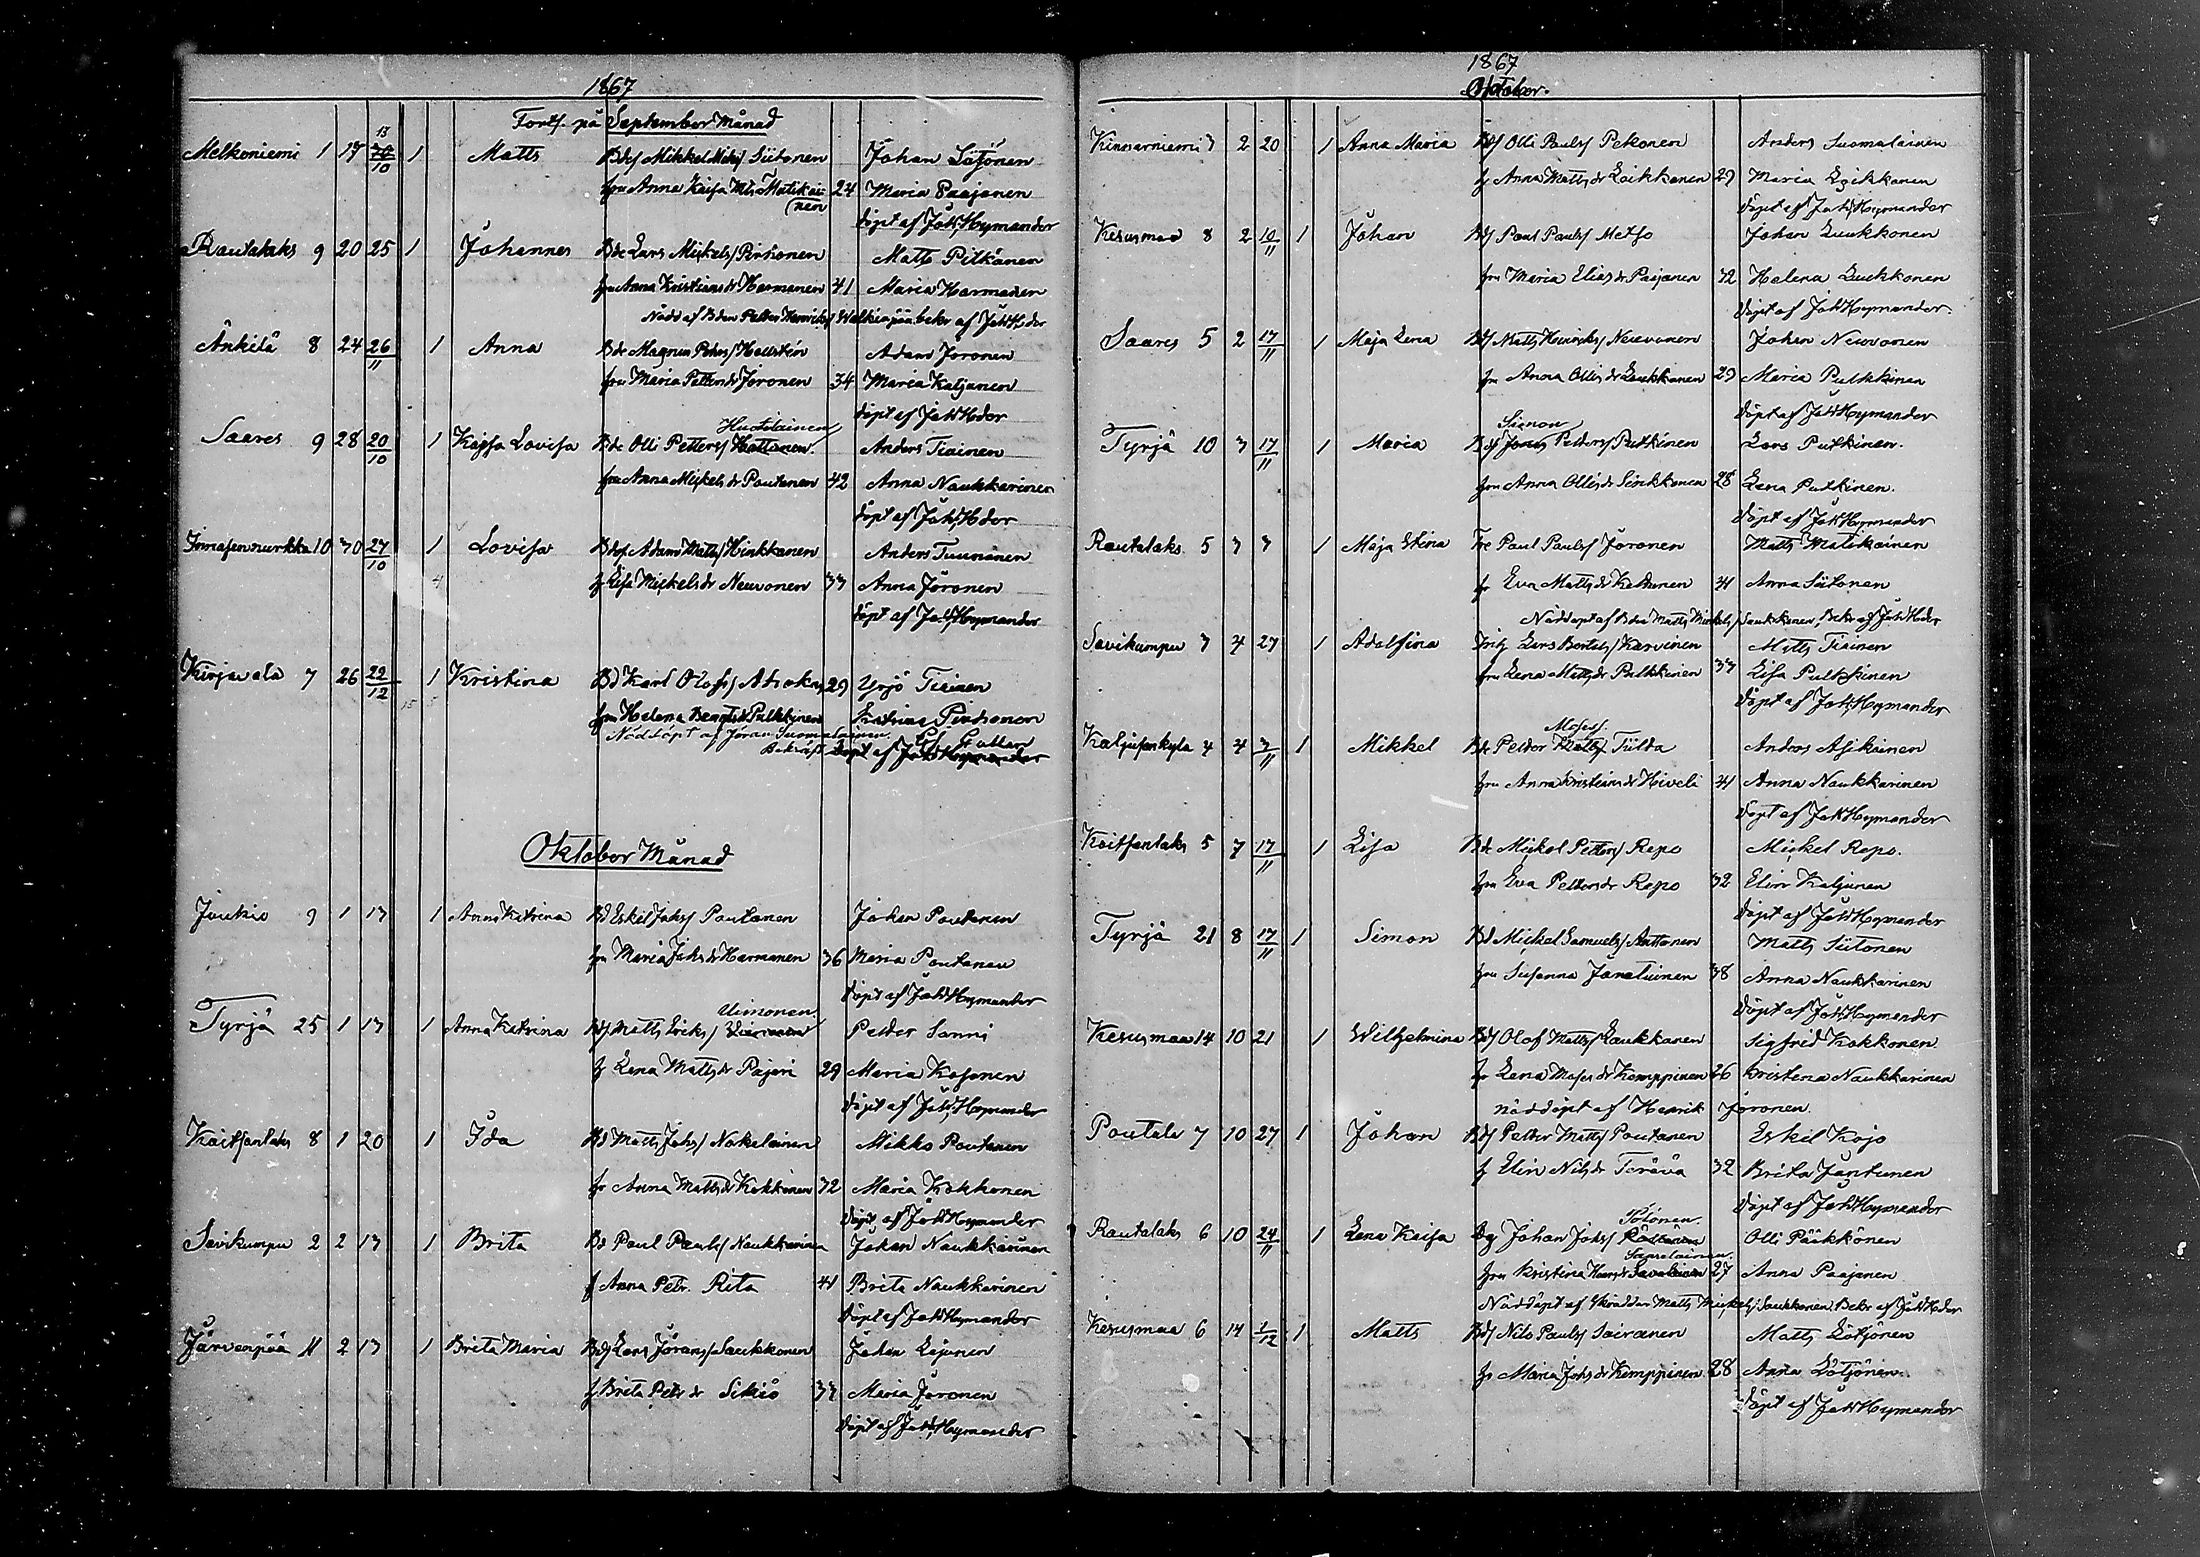 1867
Forts. på September Månad
Melkoniemi 1 17 13 20/10 1 Matts Bds/ Mikkel Mikls/ Siitonen Johan Lötjönen
fru Anna Kaisa Mls Matikai- 24 Maria Paajanen
(nen
döpt af Joh Hymander
Rautalaks 9 20 25 1 Johannes Bde Lars Mickels/ Pirhonen Matts Pitkänen
fru Anna Kristians dr Harmanen 41 Maria Harmanen
Nödd af Bden Petter Henriks/ bekr af Joh Hder
Änkilä 8 24 26/11 1 Anna Bde Magnus Peders/ Hallstén Adam Joronen
fru Maria Petters dr Joronen 34 Maria Kaljunen
döpt af Joh Hder
Huotilainen
Saares 9 28 20/10 1 Kajsa Lovisa Bde Olli Petters/ Anders Tiainen
fru Anna Mickels dr Poutanen 42 Anna Naukkarinen
döpt af Joh Hder
10 30 27/10 1 Lovisa Bds/ Adam Matts/ Hinkkanen Anders Tuunanen
f Lisa Mickels dr Neuvonen 33 Anna Joronen
döpt af Joh Hymander
Kirjavala 7 26 22/12 1 Kristina Bd Karl Olofs/ Ahokas 29 Yrjö Tiainen
fru Helena Bengts dr Pulkkinen Katrina Pirhonen
Nöddöpt af Jöran Suomalainen
Bekräft döpt af Joh Hymander
Oktober Månad
Junkio 9 1 13 1 Anna Katrina Bd Eskel Johs/ Poutanen Johan Poutanen
fru Maria Johs dr Harmanen 36 Maria Poutanen
döpt af Joh Hymander
Uimonen
Tyrjä 25 1 13 1 Anna Katrina Bds/ Matts Eriks/ Petter Sanni
f Lena Matts dr Pajari 29 Maria Kosonen
döpt af Joh Hymander
Koitsanlaks 8 1 20 1 Ida Bd Matts Johs/ Nokelainen Mikko Poutanen
fr Anna Matts dr Kokkonen 32 Maria Kokkonen
döpt af Joh Hymander
Savikumpu 2 2 13 1 Brita Bd Paul Pauls/ Naukkarinen Johan Naukkarinen
f Anna Petr. Rita 41 Brita Naukkarinen
döpt af Joh Hymander
Järvenpää 11 2 13 1 Brita Maria Bds/ Lars Jörans/ Saukkonen Johan Kajunen
f Brita Petr dr Sikiö 33 Maria Joronen
döpt af Joh Hymander
1867
Oktober.
Kinnarniemi 3 2 20 1 Anna Maria Bds/ Olli Pauls/ Pekonen Anders Suomalainen
f Anna Matts dr Loikkanen 29 Maria Loikkanen
döpt af Joh Hymander
Kesusmaa 8 2 10/11 1 Johan Bds/ Paul Pauls/ Metso Johan Luukkonen
fru Maria Elias dr Paajanen 32 Helena Luukkonen
döpt af Joh Hymander
Saares 5 2 17/11 1 Maja Lena Bds/ Matts Henriks/ Neuvonen Johan Neuvonen
fru Anna Ollis dr Loukkanen 29 Maria Pulkkinen
döpt af Joh Hymander
Simon
Tyrjä 10 3 17/11 1 Maria Bds/ Jonas Petters/ Putkinen Lars Putkinen.
fru Anna Ollis dr Sinkkonen 28 Lena Putkinen.
döpt af Joh Hymander
Rautalaks 5 3 3 1 Maja Stina Tre Paul Pauls/ Joronen Matts Matikainen
fr Eva Matts dr Ketunen 41 Anna Siitonen
Nöddöpt af Bden Matts Mickels/ Saukkonen, Bekr af Joh Hder
Savikumpu 3 4 27 1 Adolfina Lars Bertils/ Karvinen Matts Tiainen
fru Lena Matts dr Pulkkinen 33 Lisa Pulkkinen
döpt af Joh Hymander
Moses/
4 4 3/11 1 Mikkel Bde Petter Matts/ Tiilda Andres Asikainen
fru Anna Kristians dr 41 Anna Naukkarinen
döpt af Joh Hymander
Koitsanlaks 5 7 17/11 1 Lisa Bde Mickel Petters/ Repo Mickel Repo.
fru Eva Petters dr Repo 32 Elin Kaljunen
döpt af Joh Hymander
Tyrjä 21 8 17/11 1 Simon Bd Mickel Samuels/ Anttonen Matts Siitonen
fru Susanna Jantunen 38 Anna Naukkarinen
döpt af Joh Hymander
Kesusmaa 14 10 21 1 Wilhelmina Bds/ Olof Matts/ Laukkanen Sigfrid Kokkonen
fr Lena Moses dr Kemppinen 26 Kristina Naukkarinen
nöddöpt af Henrik Joronen.
Poutala 7 10 27 1 Johan Bds/ Petter Matts/ Poutanen Eskil Kojo
f Elin Nils dr Terävä 32 Brita Jantunen
döpt af Joh Hymander
Polonen.
Rautalaks 6 10 24/11 1 Lena Kaisa Johan Johs/ Olli Päikkönen
Savolainen.
fru Kristina Hans dr 27 Anna Paajanen
Nöddöpt af Skräddar Matts Mickels/ Saukkonen. Bekr af Joh Hder
Kesusmaa 6 14 1/12 1 Matts Bds/ Nils Pauls/ Sairanen Matts Lötjönen
fr Maria Johs dr Kemppinen 28 Anna Lötjönen
döpt af Joh Hymander